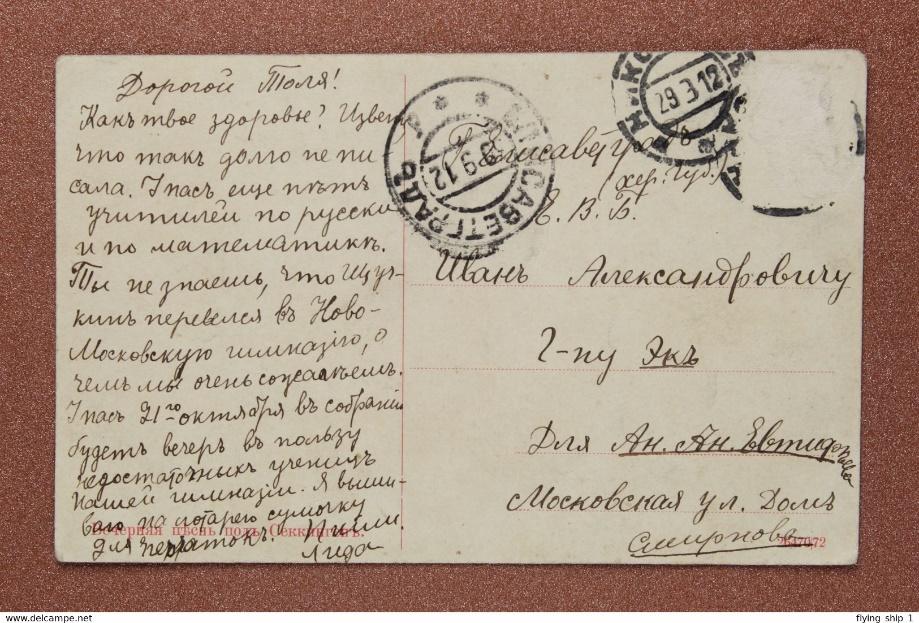 Дорогой Толя!
Какъ твое здоровье? Извени
что такъ долго не пи
сала. У насъ еще нѣтъ
учителей по русски
и по математикѣ.
Ты не знаешь, что Щуч-
кинъ перевелся въ Ново-
Московскую гимназію, о
чемъ мы очень сожалѣемъ.
У насъ 21го октября въ собраніи
будетъ вечеръ въ пользу
недостаточныхъ ученицъ
нашей гимназіи. Я выши-
ваю на лотарею сумочку
для перчатокъ. Пиши.
Лида
Вечерняя пѣснь подъ Секкингенъ.
ЕЛИСАВЕТГРАДЪ
9 12
29 3 12
Елисаветградъ
хер. губ.
Е. В. Б.
Ивану Александровичу
Г-ну Экъ
Для Ан. Ан. Евтиф
Московская ул. Домъ
Смирнова
72
flying ship 1